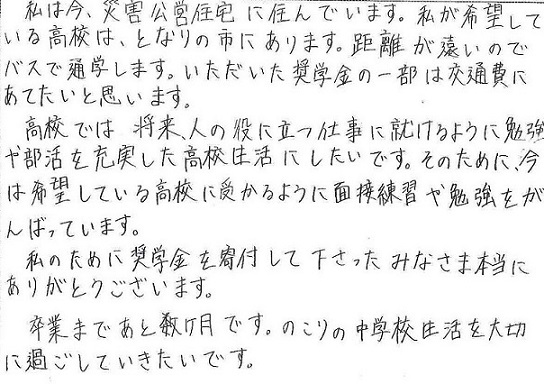 私は今、災害公営住宅に住んでいます。私が希望して
いる高校は、となりの市にあります。距離が遠いので
バスで通学します。いただいた奨学金の一部は交通費に
あてたいと思います。
高校では将来、人の役に立つ仕事に就けるように勉強
や部活を充実した高校生活にしたいです。そのために、今
は希望している高校に受かるように面接練習や勉強をが
んばっています。
私のために奨学金を寄付して下さったみなさま本当に
ありがとうございます。
卒業まであと数ヶ月です。のこりの中学校生活を大切
に過ごしていきたいです。